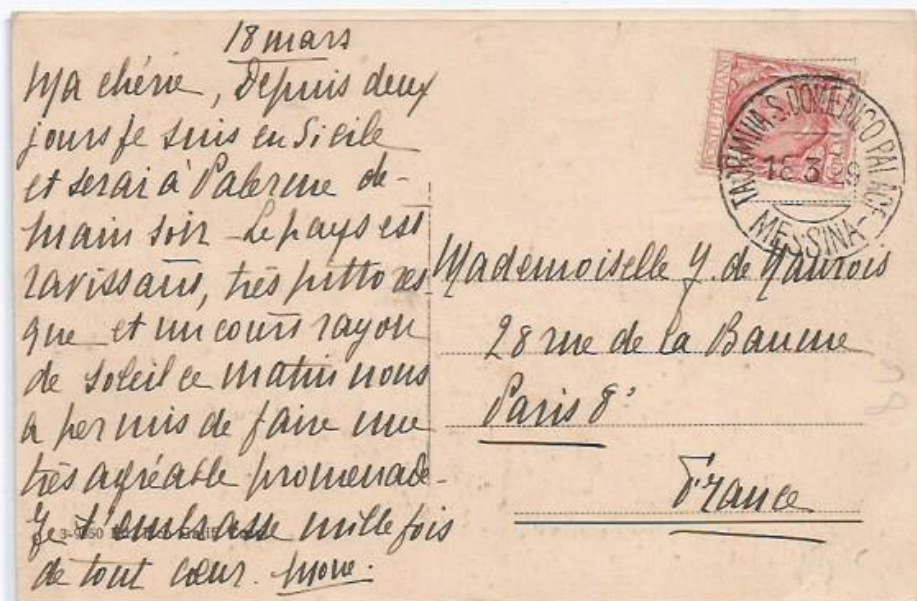 18 mars
Ma chérie, Depuis deux
jours je suis en Sicile
et serai à Palerme de-
main soir. Le pays est
ravissant, très pittores
que et un court rayon
de soleil ce matin nous
a permis de faire une
très agréable promenade.
Je t'embrasse mille fois
de tout cœur.
POSTE ITALIANE
TAORMINA S. DOMENICO PALACE
3
MESSINA
Mademoiselle Y. de
28 rue de la Baume
Paris 8e
France